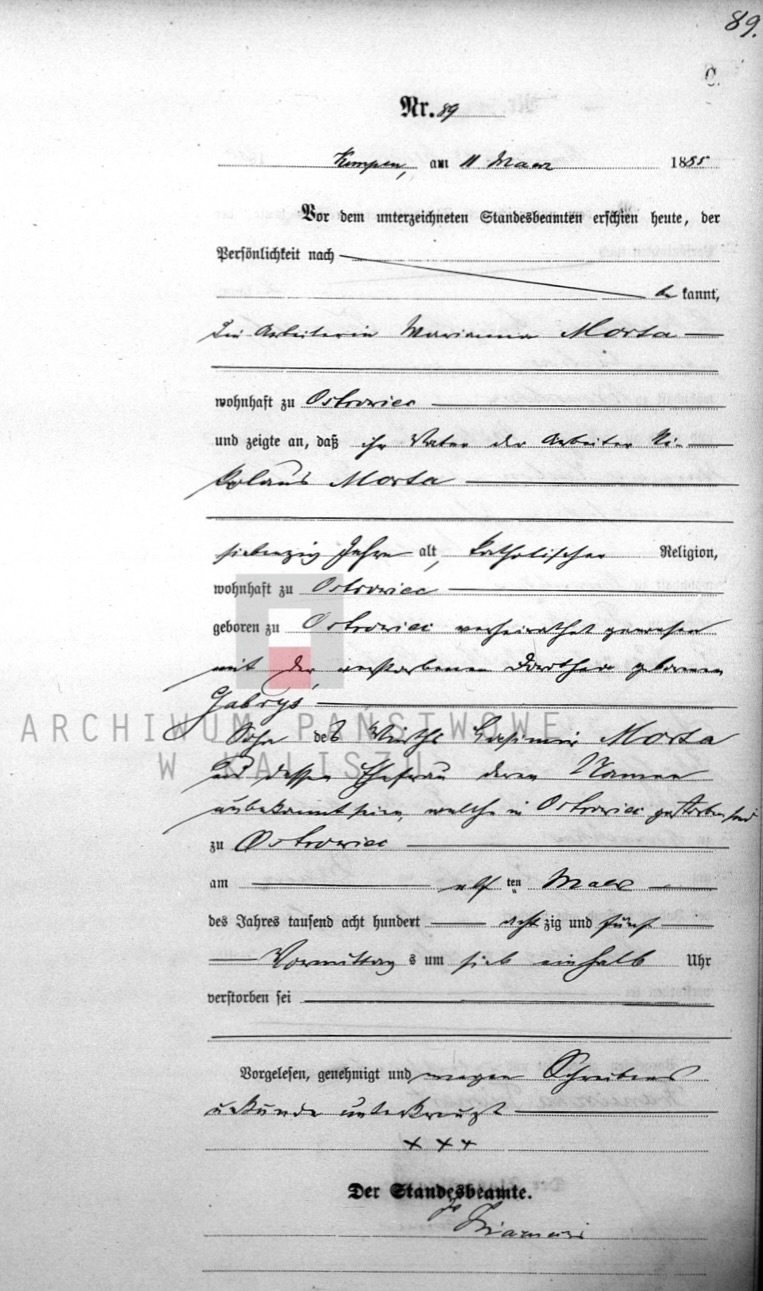 89.
C.
Nr. 89
Kempen, am 11 Maerz 1885
Vor dem unterzeichneten Standesbeamten erschien heute, der
Persönlichkeit nach
be kannt,
die Arbeiterin Marianna Morta
wohnhaft zu Ostrowiec
und zeigte an, daß ihr Vater der Arbeiter Ni-
kolaus Morta
siebenzig Jahre alt, katholischer Religion,
wohnhaft zu Ostrowiec
geboren zu Ostrowiec verheirathet gewesen
mit der verstorbenen Dorothea geborenen
Gabrys
ARCHIWUM PAŃSTWOWE
W KALISZU
Sohn des Wirths Casimir Morta
und dessen Ehefrau deren Namen
unbekannt sind, welche in Ostrowiec gestorben sind
zu Ostrowiec
am elf ten Maerz
des Jahres tausend acht hundert acht zig und fünf
Vormittag s um einhalb Uhr
verstorben sei
Vorgelesen, genehmigt und wegen Schreibens
unkunde unterkreuzt
+ + +
Der Standesbeamte.